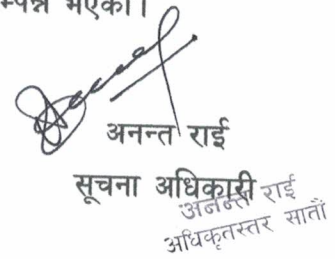 म्पन्न भएको।
अनन्त राई
सूचना अधिकारी
अनन्त राई
अधिकृतस्तर सातौं